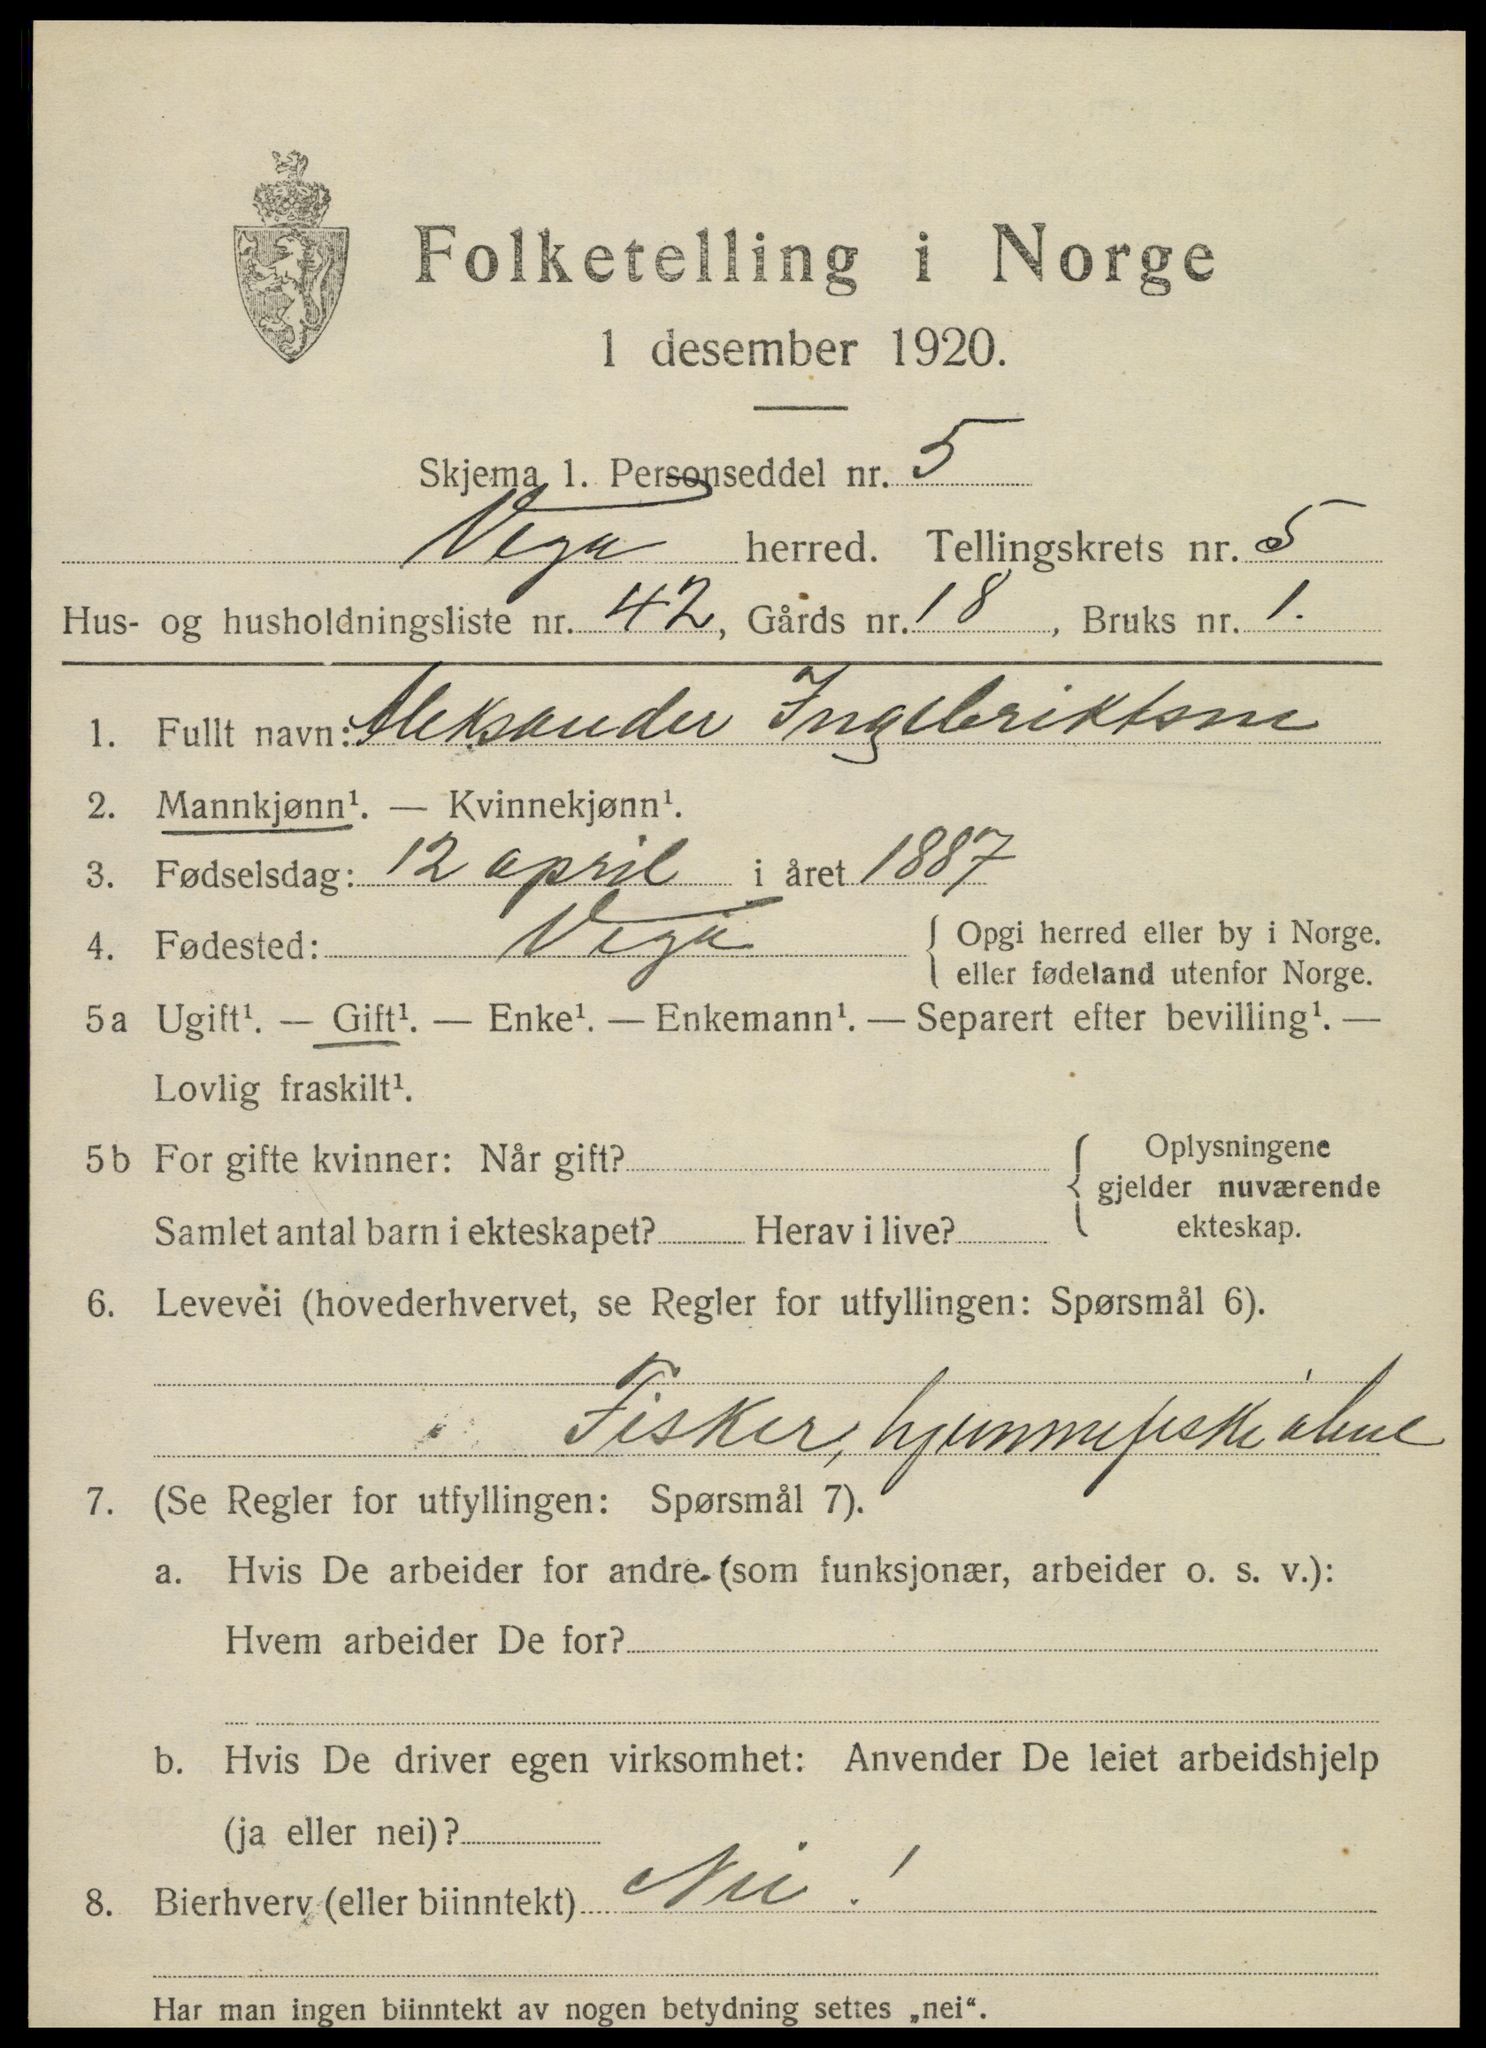 Folketelling i Norge
1 desember 1920.
Skjema 1. Personseddel nr. 5
Vega herred. Tellingskrets nr. 5
Hus- og husholdningsliste nr. 42, Gårds nr. 18, Bruks nr. 1.
1. Fullt navn: Aleksander Ingebriktsen
2. Mannkjønn¹. — Kvinnekjønn¹.
3. Fødselsdag: 12 april i året 1887
4. Fødested: Vega { Opgi herred eller by i Norge.
eller fødeland utenfor Norge.
5a Ugift¹. — Gift¹. — Enke¹. — Enkemann¹. — Separert efter bevilling¹. —
Lovlig fraskilt¹.
5b For gifte kvinner: Når gift? { Oplysningene
gjelder nuværende
Samlet antal barn i ekteskapet? Herav i live? ekteskap.
6. Levevei (hovederhvervet, se Regler for utfyllingen: Spørsmål 6).
Fisker, hjemmefiske
7. (Se Regler for utfyllingen: Spørsmål 7).
a. Hvis De arbeider for andre (som funksjonær, arbeider o. s. v.):
Hvem arbeider De for?
b. Hvis De driver egen virksomhet: Anvender De leiet arbeidshjelp
(ja eller nei)?
8. Bierhverv (eller biinntekt) Nei!
Har man ingen biinntekt av nogen betydning settes „nei“.